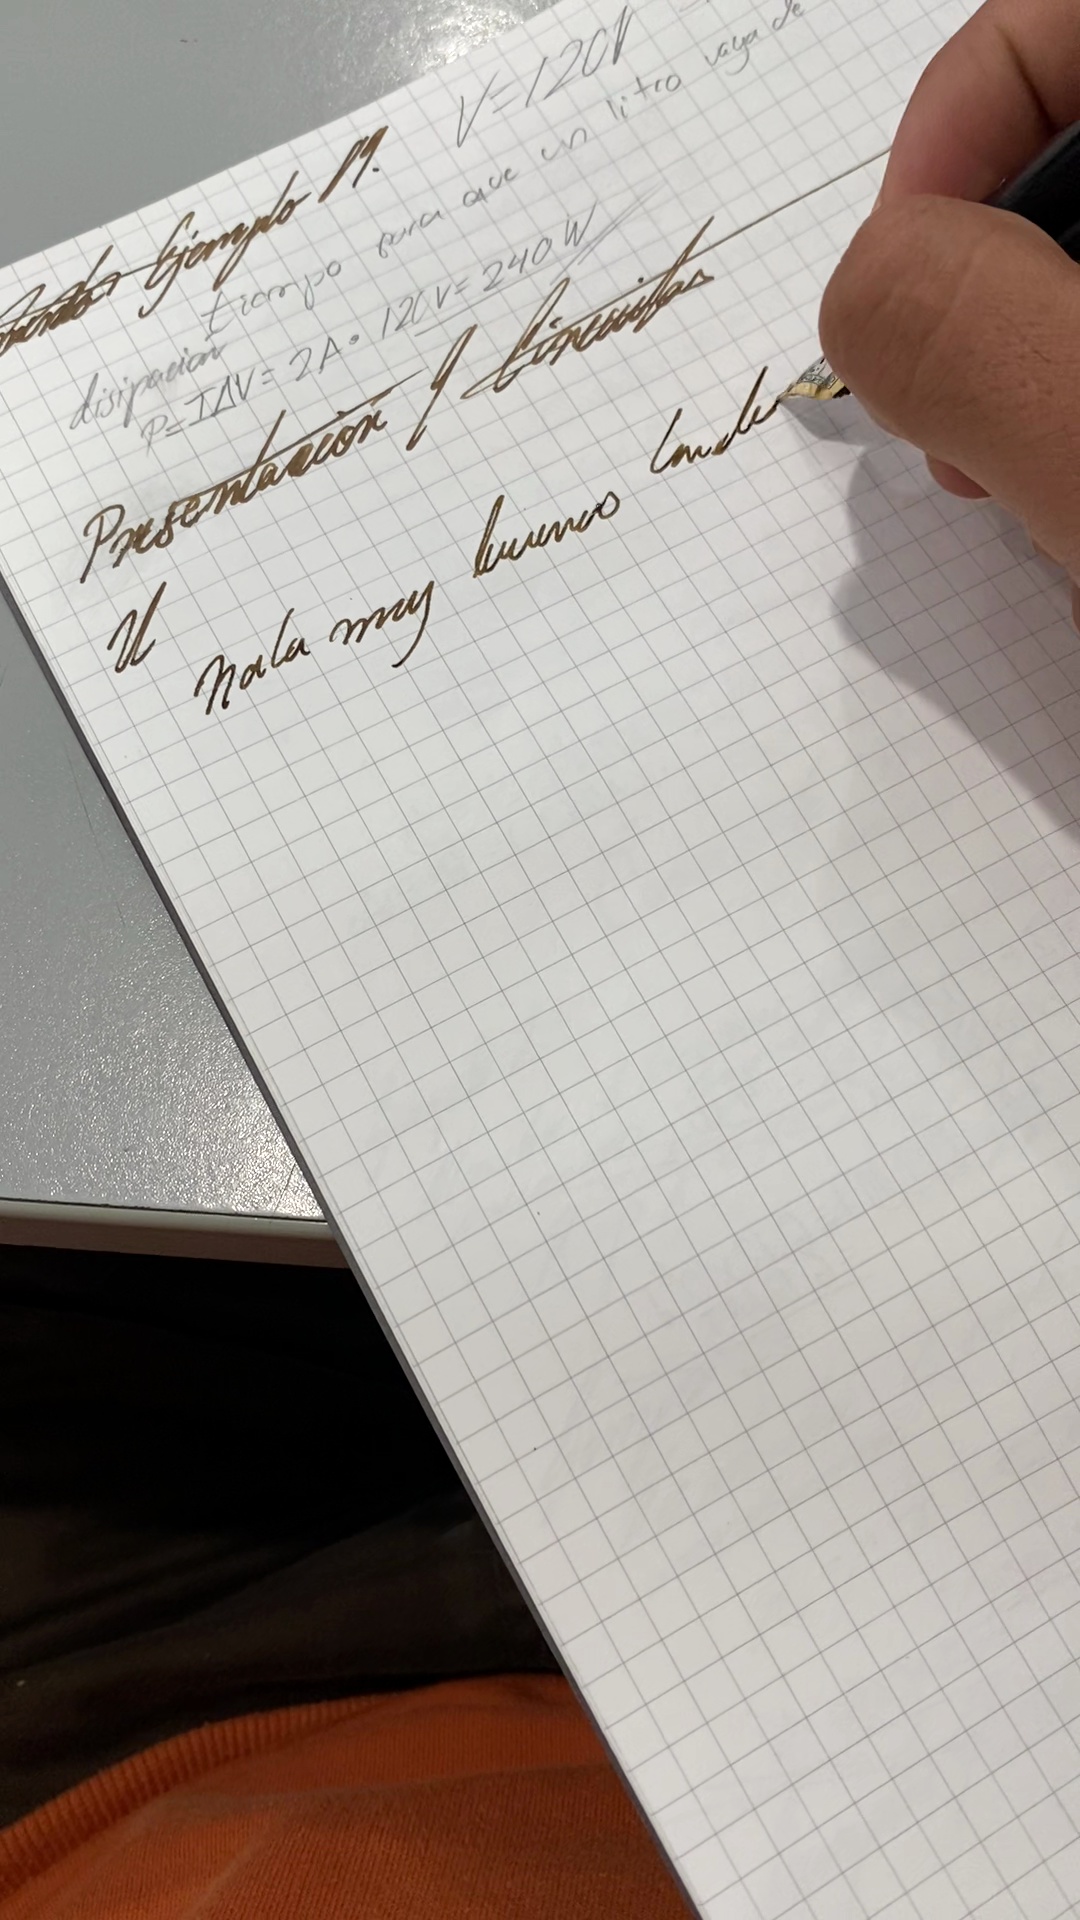 V=120V
Ejemplo
tiempo para que un litro vaya de
disipación
P=IΔV= 2A · 120V= 240W
Presentación y Circuitos
hola muy buenas